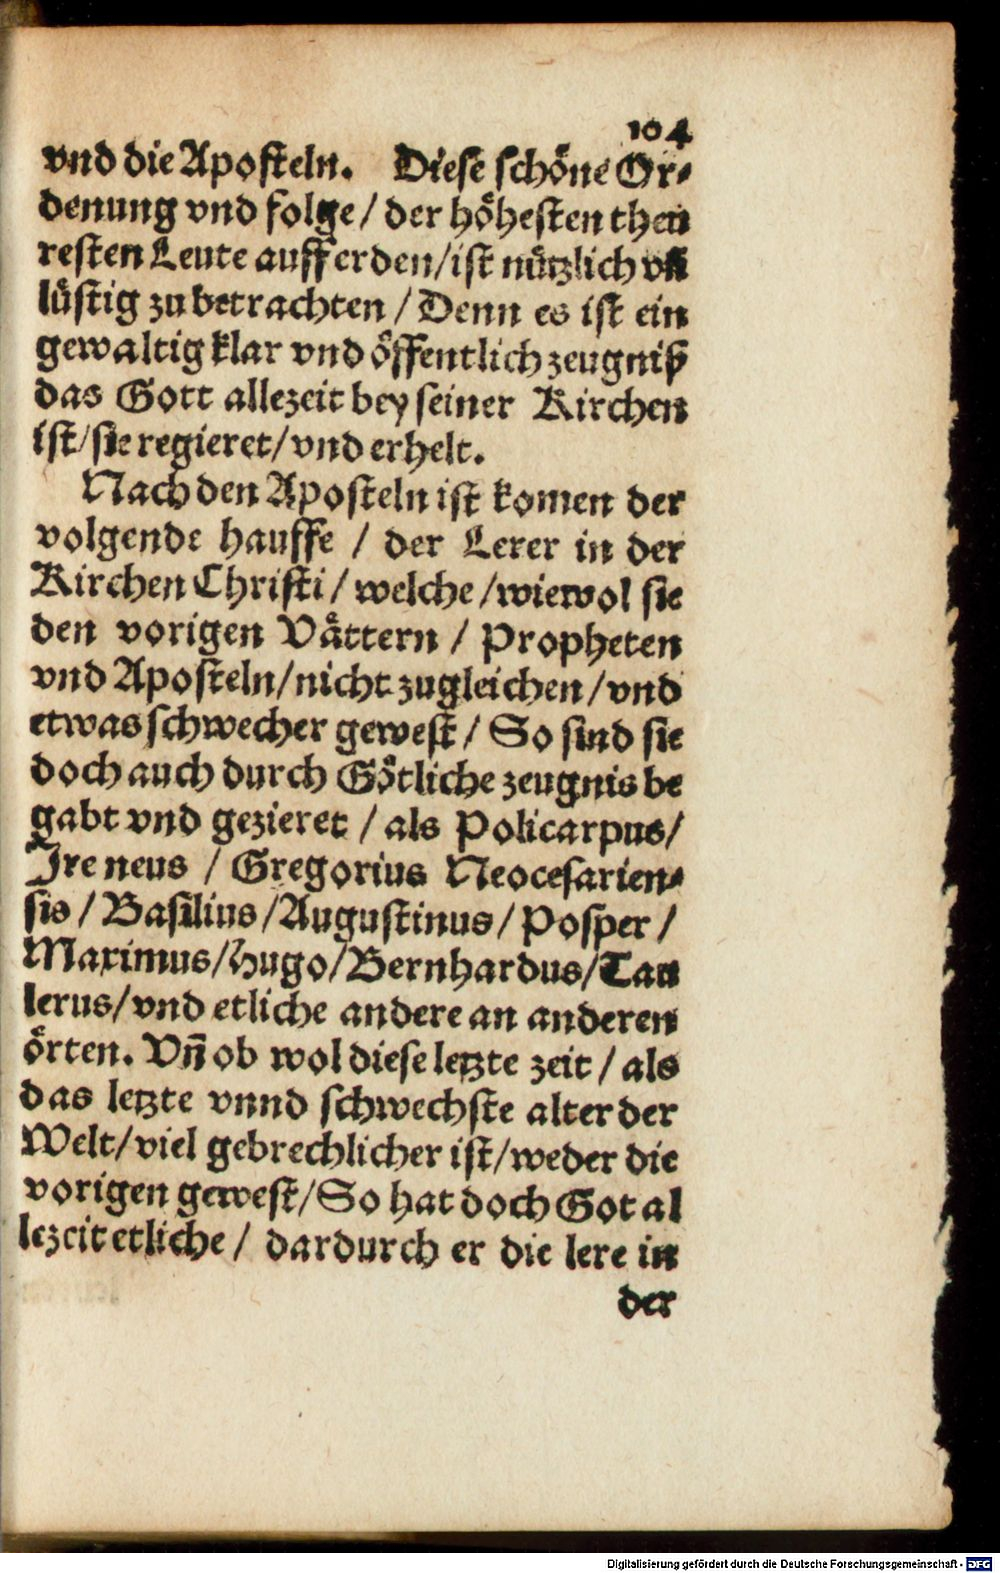 104
vnd die Aposteln. Diese schöne Or-
denung vnd folge / der höhesten theu
resten Leute auff erden / ist nützlich vñ
lüstig zu betrachten / Denn es ist ein
gewaltig klar vnd öffentlich zeugniß
das Gott allezeit bey seiner Kirchen
ist / sie regieret / vnd erhelt.
Nach den Aposteln ist komen der
volgende hauffe / der Lerer in der
Kirchen Christi / welche / wiewol sie
den vorigen Vättern / Propheten
vnd Aposteln / nicht zugleichen / vnd
etwas schwecher gewest / So sind sie
doch auch durch Götliche zeugnis be
gabt vnd gezieret / als Policarpus /
Ireneus / Gregorius Neocesarien-
sis / Basilius / Augustinus / Posper /
Maximus / Hugo / Bernhardus / Tau
lerus / vnd etliche andere an anderen
örten. Vñ ob wol diese letzte zeit / als
das letzte vnnd schwechste alter der
Welt / viel gebrechlicher ist / weder die
vorigen gewest / So hat doch Got al
lezeit etliche / dardurch er die lere in
der
Digitalisierung gefördert durch die Deutsche Forschungsgemeinschaft - DFG